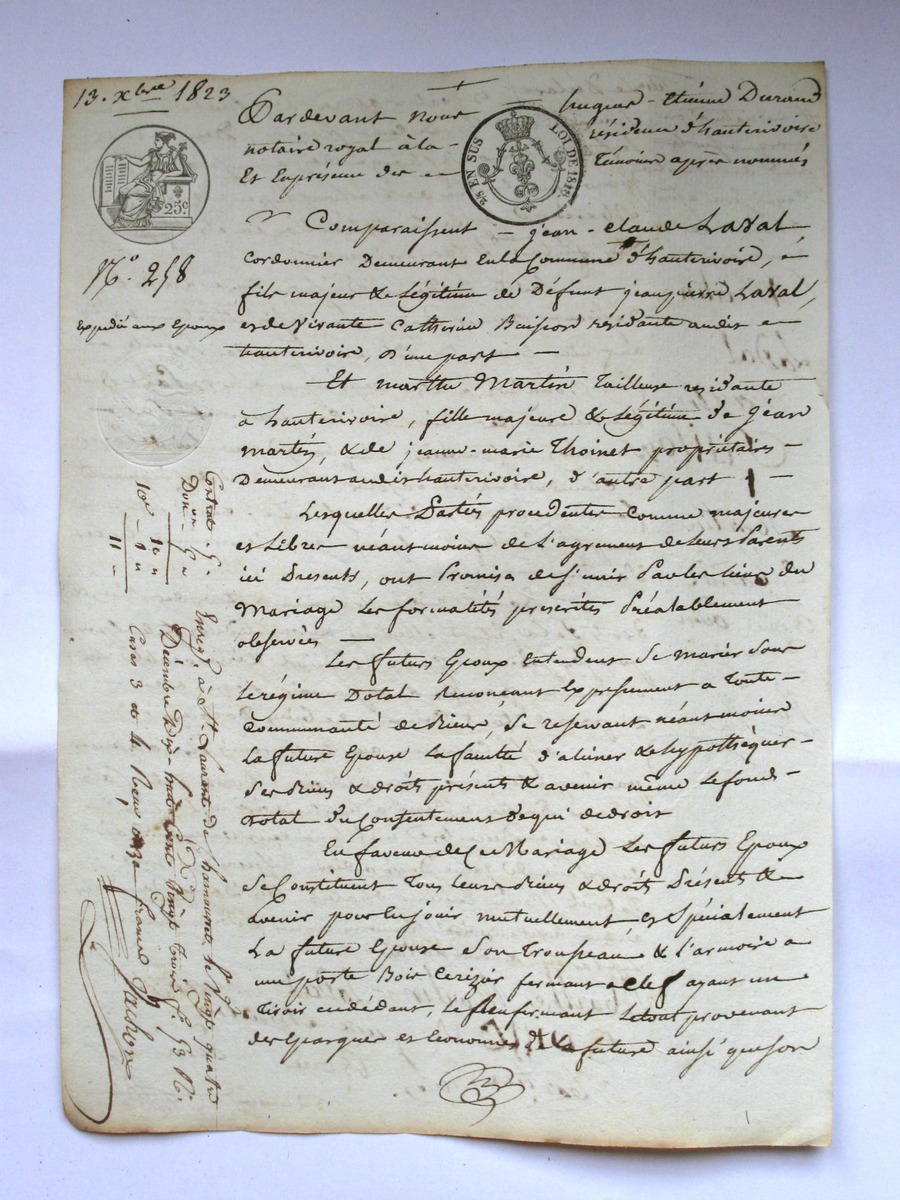 13. Xbre 1823
Pardevant nous hugues - Etienne Durand
notaire royal à la - résidence d'hauterivoire
Et En présence des témoins après nommés
25 EN SUS LOI DE 1816.
25c.
N.o 258
Expédié aux Epoux
Comparaissent - jean - claude Laval,
Cordonnier Demeurant En la Commune d'hauterivoire,
fils majeur & Légitime de Défunt jean pierre Laval,
et de vivante Catherine Buisson residante audit
hauterivoire, d'une part -
Et marthe Martin Tailleuse residante
à hauterivoire, fille majeure & Légitime de jean
martin, & de jeanne - marie Thoinet propriétaires -
Demeurans audit hauterivoire, d'autre part -
Lesquelles Parties procédentes Comme majeures
et Libres néantmoins de L'agrement de Leurs Parents
ici Présents, ont Promis de s'unir Par les liens du
Mariage Les formalités prescrites Préalablement
observées -
Les futurs Epoux Entendent Se Marier Sous
Le régime Dotal Renonçant Expressement a Toute -
Communauté de Biens, Se reservant néantmoins
La future Epouse La faculté d'aliéner & hypothéquer -
Ses Biens & droits présents & avenir même Le fond -
Dotal du Consentement de qui de droit
En faveur de Ce Mariage Les futurs Epoux
Se Constituent Tous Leurs Biens & droits Présents &
avenir pour En jouir mutuellement, et Spécialement
La future Epouse Son Trousseau & l'armoire a
une porte Bois Cerizier fermant a clef ayant un
Tiroir en dédant, Le Renfermant Le tout provenant
des Epargnes et Economies de La future ainsi que son
Contrat 5f.
Don on 5 "
10 "
1 "
11 -
Enreg.é à St Laurent de Chamousset le vingt quatre
Décembre Dix-huit Cent Vingt Trois f.o 53 R.o
Cases 3 et 4 Reçu onze francs